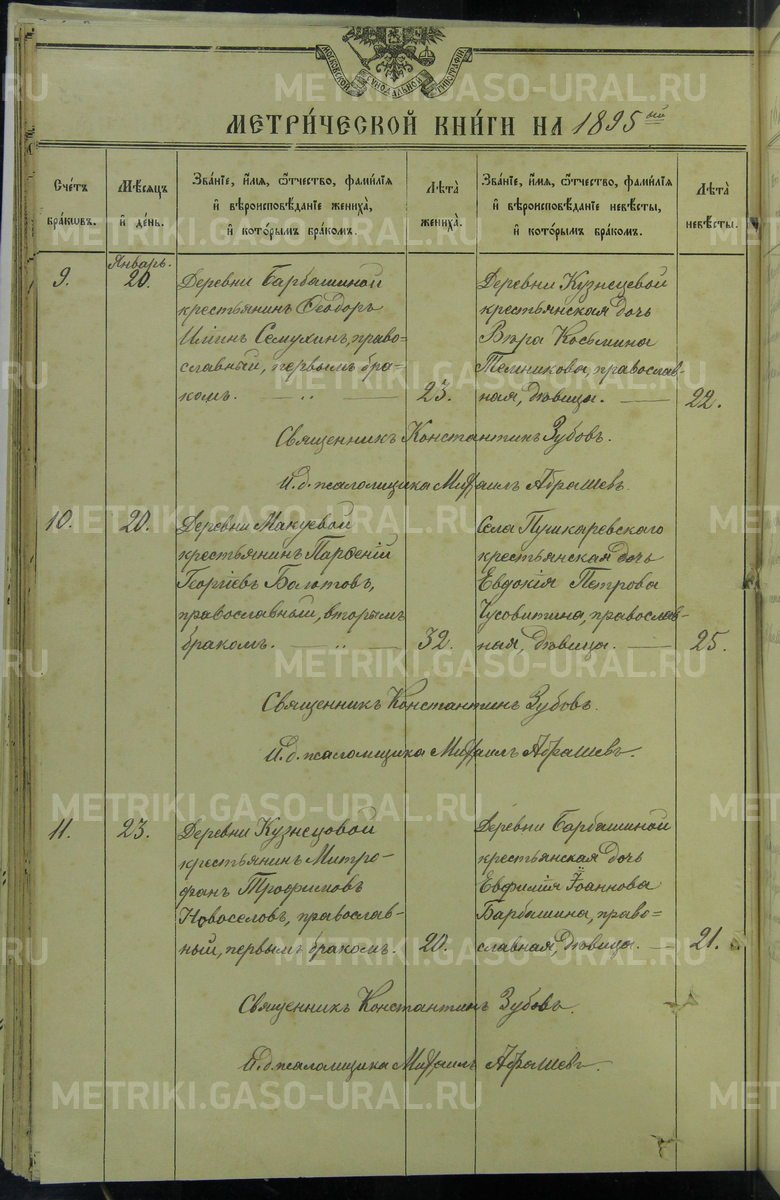 МОСКОВСКОЙ СѴНОДАЛЬНОЙ ТИПОГРАФІИ
МЕТРИ́ЧЕСКОЙ КНИ́ГИ НА 1895ый
Сче́тъ бра́кѡвъ.
Мѣ́сѧцъ и҆ де́нь.
Зва́нїе, и҆́мѧ, ѻ҆́тчество, фами́лїѧ
и҆ вѣроисповѣ́данїе жениха̀,
и҆ кото́рымъ бра́комъ.
Лѣ́та жениха̀.
Зва́нїе, и҆́мѧ, ѻ҆́тчество, фами́лїѧ
и҆ вѣроисповѣ́данїе невѣ́сты,
и҆ кото́рымъ бра́комъ.
Лѣ́та невѣ́сты.
Январь.
9.
20.
Деревни Барбашиной
крестьянинъ Ѳеодоръ
Илiинъ Семухинъ, право=
славный, первымъ бра=
комъ. — „ —
23.
Деревни Кузнецевой
крестьянская дочь
Вѣра Косьмина
Темникова, православ-
ная, дѣвица. —
22.
Священникъ Константинъ Зубовъ.
И. д. псаломщика Михаилъ Абрашевъ.
10.
20.
Деревни Макуевой
крестьянинъ Парѳеній
Георгіевъ Болотовъ,
православный, вторымъ
бракомъ. — „ —
32.
Села Пушкаревскаго
крестьянская дочь
Евдокія Петрова
Чусовитина, православ-
ная, дѣвица. —
25.
Священникъ Константинъ Зубовъ.
И. д. псаломщика Михаилъ Абрашевъ.
11.
23.
Деревни Кузнецовой
крестьянинъ Митро-
фанъ Трофимовъ
Новоселовъ, православ-
ный, первымъ бракомъ.
20.
Деревни Барбашиной
крестьянская дочь
Евфимія Іоаннова
Барбашина, право=
славная, дѣвица. —
21.
Священникъ Константинъ Зубовъ.
И. д. псаломщика Михаилъ Абрашевъ.
METRIKI.GASO-URAL.RU